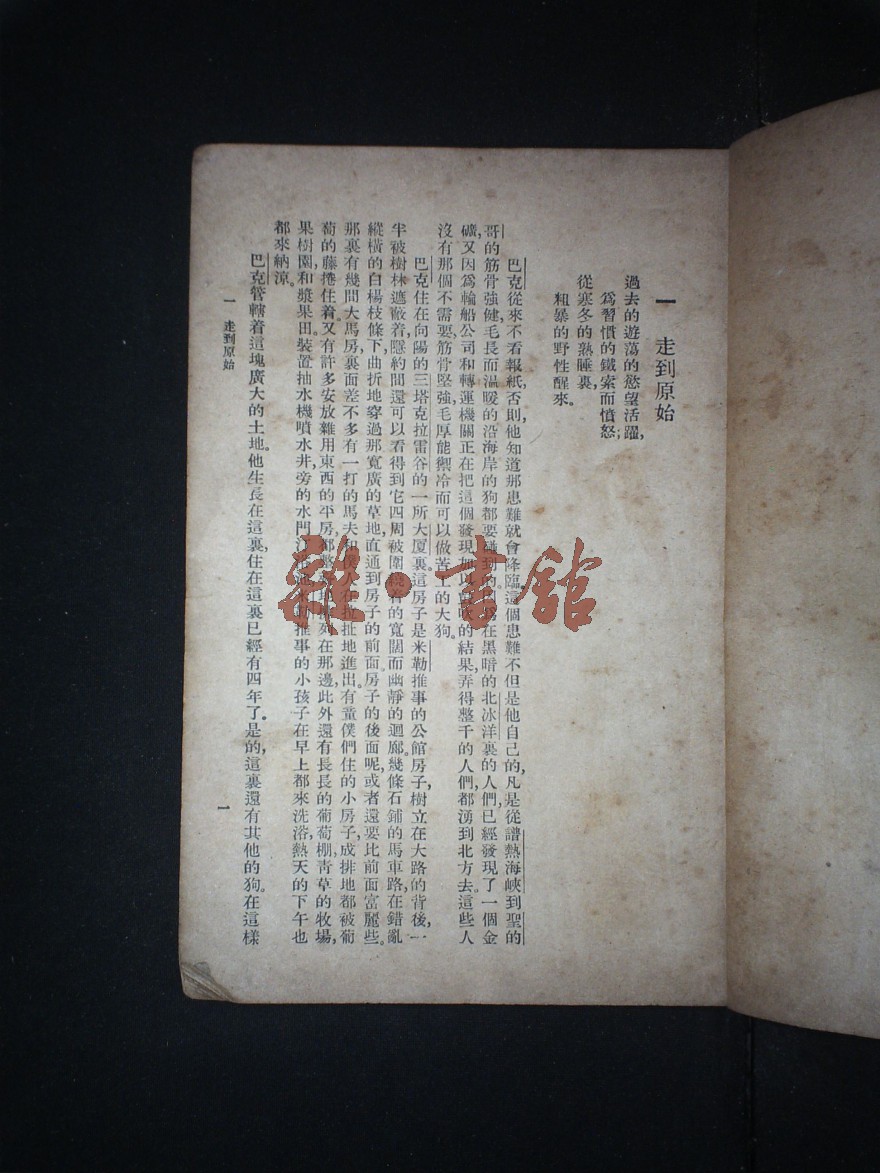 一 走到原始
過去的遊荡的慾望活躍,
爲習慣的鐵索而憤怒;
從寒冬的熟睡裏,
粗暴的野性醒來。
巴克從來不看報紙,否則他知道那患難就會降臨,這個患難不但是他自己的,凡是從譜熱海峽到聖的
哥的筋骨強健毛長而温暖的沿海岸的狗都要碰到的。因爲在黑暗的北冰洋裏的人們,已經發現了一個金
礦,又因爲輪船公司和轉運機關正在把這個發現加以鼓吹的結果,弄得整千的人們,都湧到北方去。這些人
沒有那個不需要筋骨堅強毛厚能禦冷而可以做苦工的大狗。
巴克住在向陽的三塔克拉雷谷的一所大厦裏。這房子是米勒推事的公館房子,樹立在大路的背後,一
半被樹林遮蔽着,隱約間還可以看得到它四周被圍繞着的寬闊而幽靜的迴廊。幾條石鋪的馬車路,在錯亂
縱橫的白楊枝條下,曲折地穿過那寬廣的草地,直通到房子的前面。房子的後面呢,或者還要比前面富麗些。
那裏有幾間大馬房,裏面差不多有一打的馬夫和僕人在拉扯地進出。有童僕們住的小房子,成排地都被葡
萄的藤捲住着。又有許多安放雜用東西的平房,都整齊地排列在那邊,此外還有長長的葡萄棚,青草的牧場,
果樹園,和漿果田。裝置抽水機噴水井,旁的水門汀浴池,米勒推事的小孩子在早上都來洗浴,熱天的下午也
都來納涼。
巴克管轄着這塊廣大的土地。他生長在這裏,住在這裏已經有四年了。是的,這裏還有其他的狗。在這樣
一 走到原始
一
雜·書館